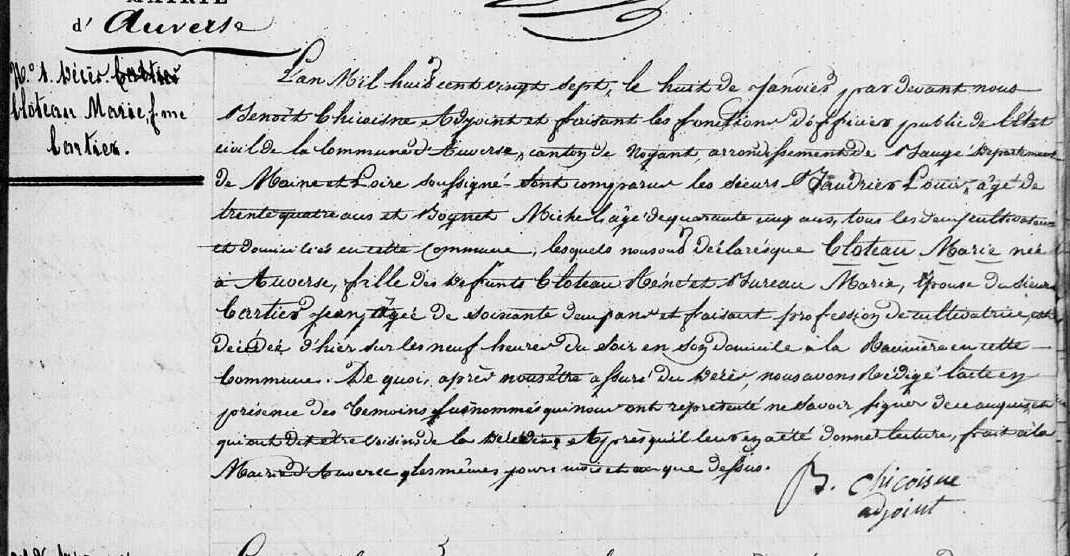 MAIRIE
d'Auverse
N.º 1. Décès Cartier
Cloteau Marie f.me
Cartier.
L'an Mil huit cent vingt sept, le huit de Janvier par devant nous
Benoît Chicoisne, Adjoint et faisant les fonctions d'officier public de l'État
civil de la Commune d'Auverse, canton de Noyant, arrondissement de Baugé Département
de Maine et Loire soussigné sont comparus les sieurs Baudrier Louis, âgé de
trente quatre ans et Michel âgé de quarante cinq ans, tous les deux cultivateurs
et domiciliés en cette Commune, lesquels nous ont déclarés que Cloteau Marie née
à Auverse, fille des Defunts Cloteau Réné et Bureau Marie, Épouse du Sieur
Cartier Jean, âgée de soixante deux ans et faisant profession de cultivatrice, est
décédée d'hier sur les neuf heures du soir en son domicile à la en cette
Commune. De quoi, après nous être assuré du Décès, nous avons Rédigé l'acte en
présence des Témoins susnommés qui nous ont représenté ne savoir signer de ce enquis, et
qui ont dit être voisins de la Décédée, et Après qu'il leur en a été donné lecture, fait à la
Mairie d'Auverse les mêmes jours mois et an que dessus.
B. Chicoisne
adjoint